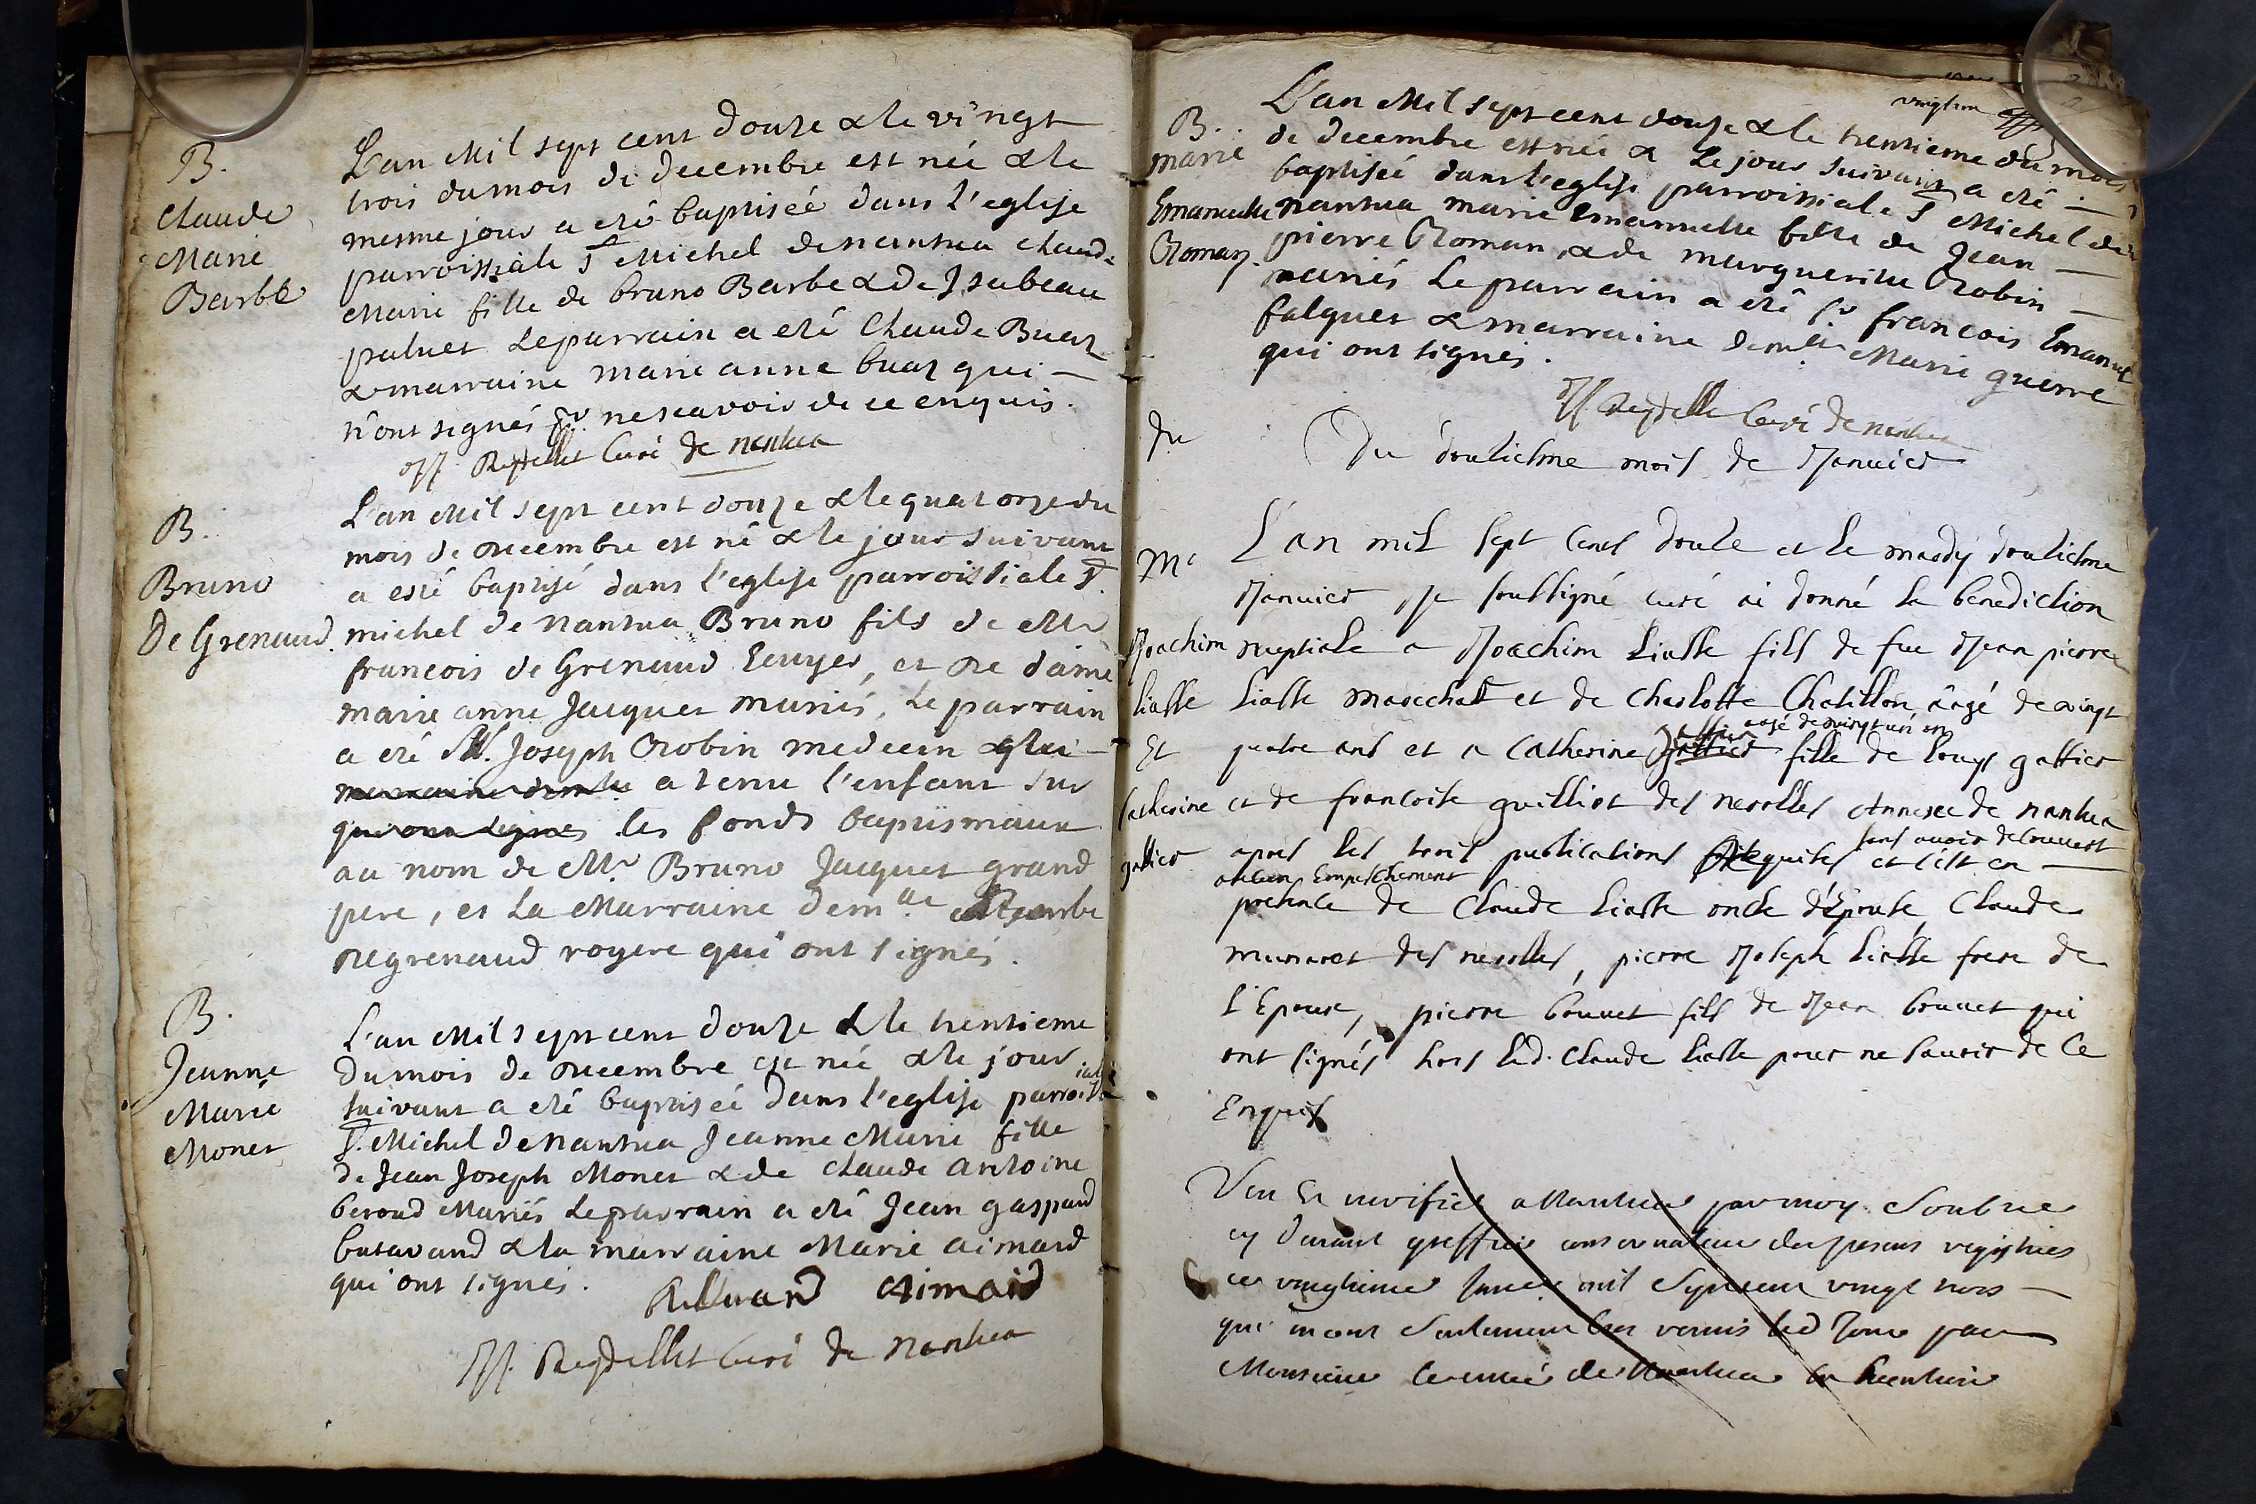 B.
Claude
Marie
Barbe
L'an Mil sept cent douze & le vingt
trois du mois de decembre est née & le
mesme jour a eté baptisée dans l'eglise
parroissiale St Michel de nantua claude
Marie fille de bruno Barbe & de Isabeau
paluet Le parrain a eté Claude Buaz
& marraine marie anne buaz qui
n'ont signés pr ne scavoir de ce enquis.
Reydellet Curé de nantua
B.
Bruno
De Grenaud.
L'an Mil sept cent douze & le quatorze du
mois de decembre est né & le jour suivant
a esté baptisé dans l'eglise parroissiale St.
michel de nantua Bruno fils de Mr
francois de Grenaud Ecuyer, et de dame
marie anne Jacquet mariés, Le parrain
a eté Mr. Joseph Robin medecin qui
a tenu l'enfant sur
qui ont signés les fonds baptismaux
au nom de Mr Bruno Jacquet grand
pere, et La Marraine demlle
degrenaud royere qui ont signés.
B.
Jeanne
Marie
Monet
L'an Mil sept cent douze & le trentieme
du mois de decembre est née & le jour
suivant a eté baptisée dans l'eglise parroissiale
St. Michel de nantua Jeanne Marie fille
de Jean Joseph Monet & de claude antoine
beroud Mariés Le parrain a eté Jean gaspard
butavand & la marraine Marie aimard
qui ont signés.
Aimard
Reydellet Curé de nantua
vingt un
B.
marie
Emanuelle
Roman.
L'an Mil sept cent douze & le trentieme du mois
de decembre est née & Le jour suivant a eté
baptisée dans l'eglise parroissiale St Michel de
nantua marie Emanuelle fille de Jean
pierre Roman & de marguerite Robin
mariés Le parrain a eté sr francois Emanuel
falquet & marraine demlle Marie guerre
qui ont signés.
Reydellet Curé de nantua
Du
Du douziesme mois de Janvier
Mr
Joachim
Liasse
Et
Catherine
gallier
L'an mil sept cens douze et le mardy douziesme
Janvier, Je soussigné curé ai donné la benediction
nuptiale a Joachim Liasse fils de feu Jean pierre
Liasse marechal et de Charlotte Chatillon aagé de vingt
aagé de vingt un an
quatre ans et a Catherine gallier fille de Louys gallier
et de francoise guilliot des nerolles Annexe de nantua
sans avoir decouvert
apres les trois publications requises et c'est en
aucun Empeschement
presence de Claude Liasse oncle d'Epouse, Claude
munaret des nerolles, pierre Joseph Liasse frere de
l'Epouse, pierre bouuet fils de Jean bouuet qui
ont signés hors led. Claude Liasse pour ne savoir de Ce
Enquis
Veu Et verifié a Nantua par moy Soubne
cy devant greffier conservateur des presens registres
ce vingtieme Janvier mil Sept cent vingt trois
qui m'ont Seulement Este remis led Jour par
Monsieur le curé de Nantua